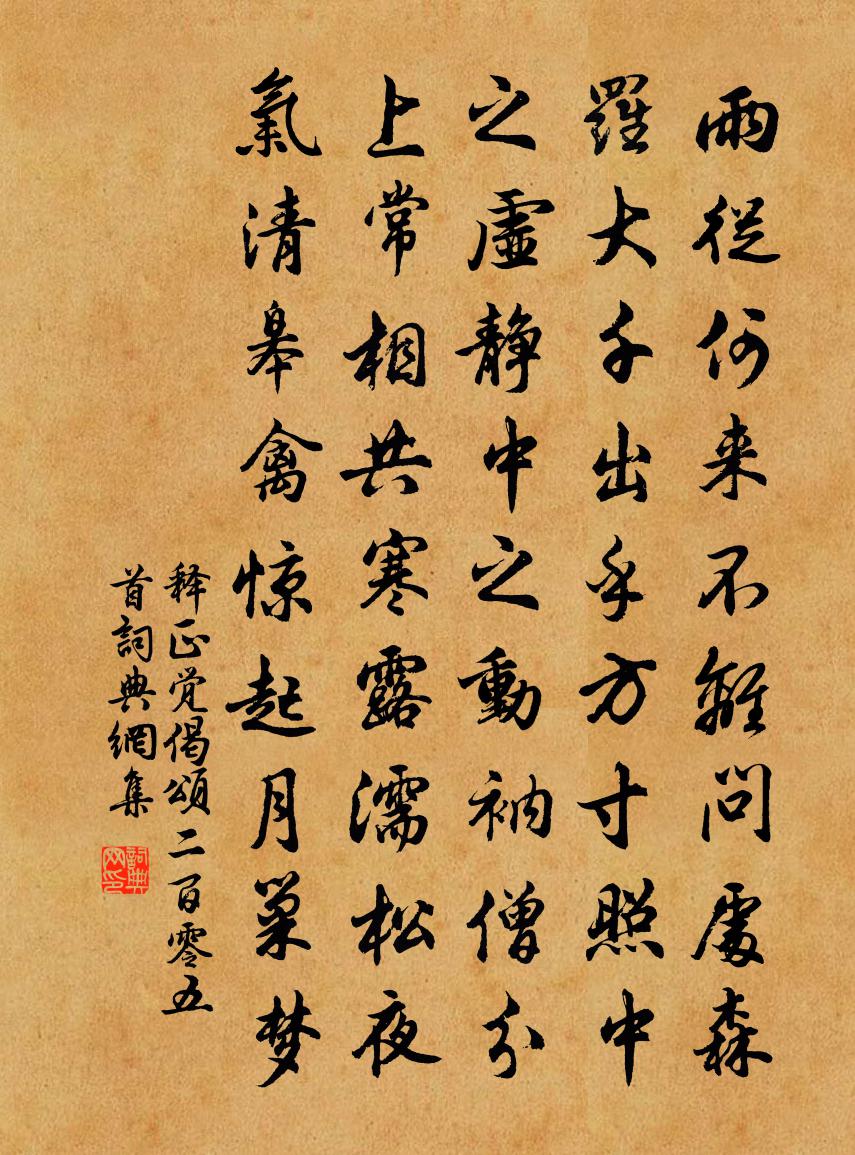 雨從何来不離問處森
羅大千出乎方寸照中
之虛静中之動衲僧分
上常相共寒露濡松夜
氣清皋禽惊起月巢梦
释正觉偈頌二百零五
首詞典網集
詞典网印